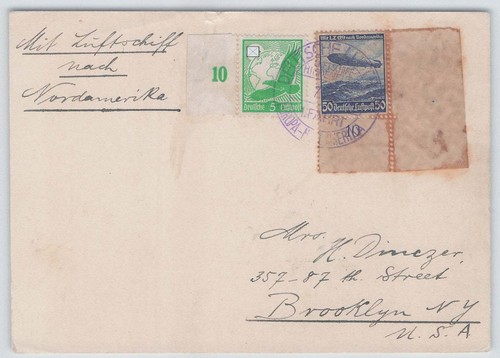 Mit Luftschiff
nach
Nordamerika
10
Deutsche 5 Luftpost
MIT LZ 129 nach Nordamerika
50 Deutsche Luftpost 50
Mrs. H. Dinczer,
357-87 th. Street
Brooklyn NY
U. S. A